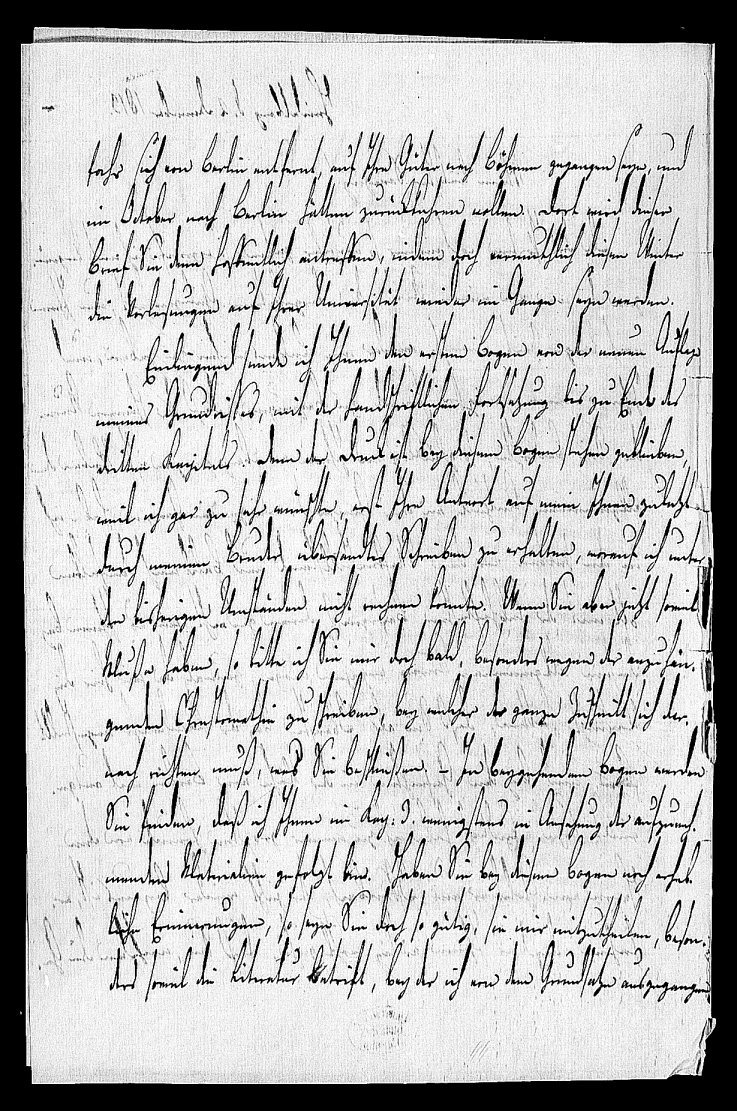 fahr sich von Berlin entfernt, auf Ihre Güter nach Böhmen gegangen seyn, und
im October nach Berlin hätten zurückkehren wollen. Dort wird dieser
Brief Sie denn hoffentlich antreffen, indem doch vermuthlich diesen Winter
die Vorlesungen auf Ihrer Universität wieder im Gange seyn werden.
Einliegend sende ich Ihnen den ersten Bogen von der neuen Auflage
meines Grundrisses, mit der handschriftlichen Fortsetzung bis zu Ende des
dritten Kapitels. Denn der Druck ist bey diesem Bogen stehen geblieben,
weil ich gar zu sehr wünschte, erst Ihre Antwort auf mein Ihnen zuletzt
durch meinen Bruder übersandtes Schreiben zu erhalten, worauf ich unter
den bisherigen Umständen nicht rechnen konnte. Wenn Sie aber jetzt soviel
Muße haben, so bitte ich Sie mir doch bald, besonders wegen der anzuhän-
genden Chrestomathie zu schreiben, bey welcher der ganze Zuschnitt sich dar-
nach richten muß, was Sie beschließen. – In beygehendem Bogen werden
Sie finden, daß ich Ihnen im Kap: 3. wenigstens in Ansehung der aufzuneh-
menden Materialien gefolgt bin. Haben Sie bey diesem Bogen noch erheb-
liche Erinnerungen, so seyn Sie doch so gütig, sie mir mitzutheilen, beson-
ders soviel die Literatur betrift, bey der ich von dem Grundsatze ausgegangen